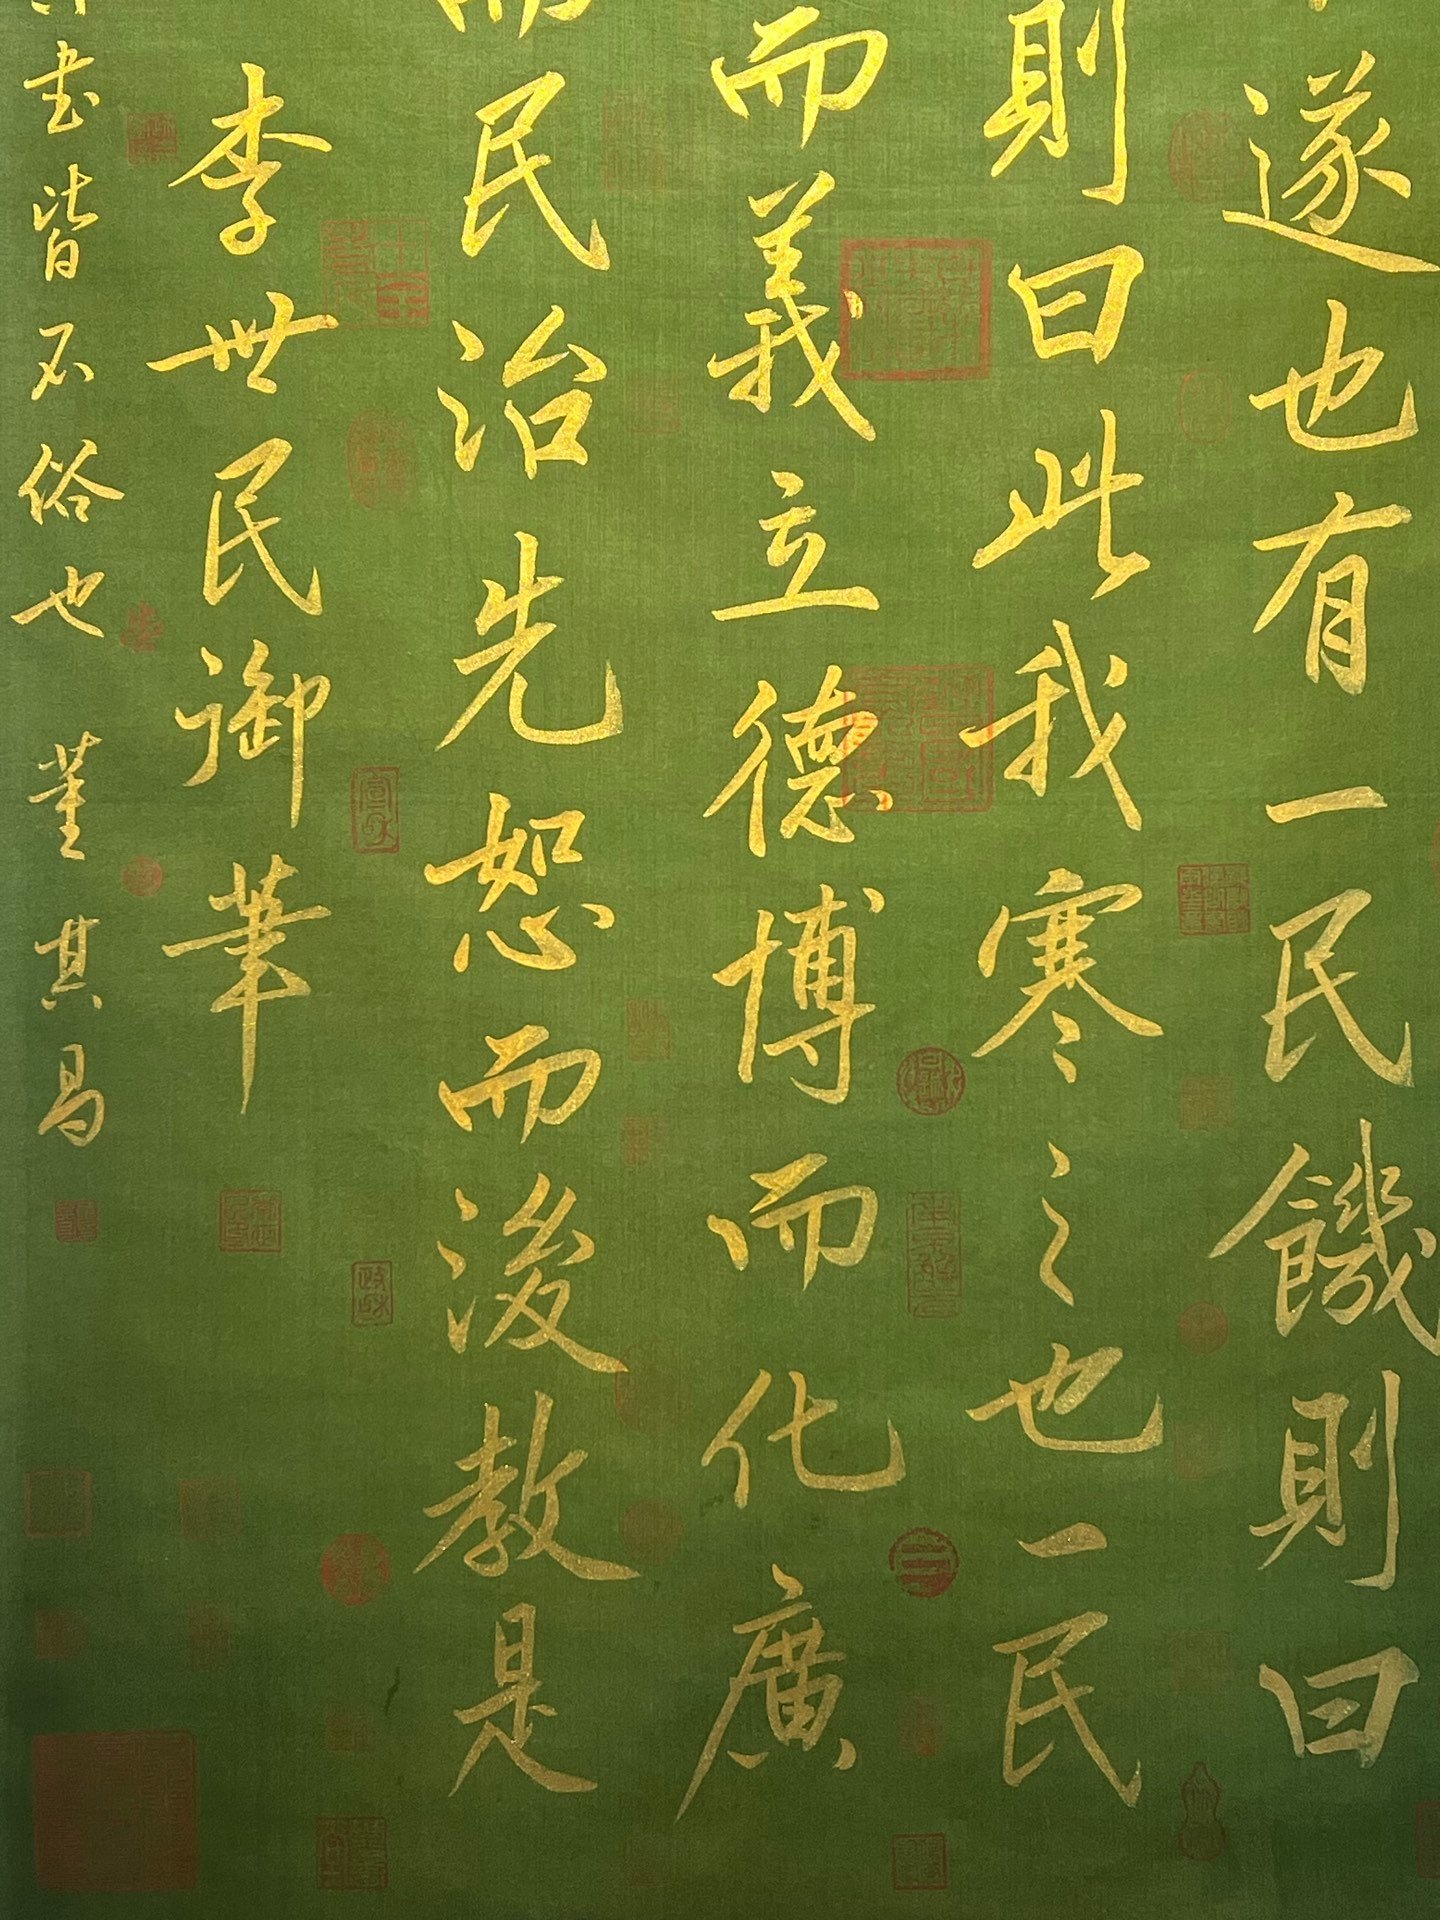 遂也有一民饑則曰
則曰此我寒之也一民
而義立德博而化廣
而民治先恕而後教是
李世民御筆
書皆不俗也 董其昌